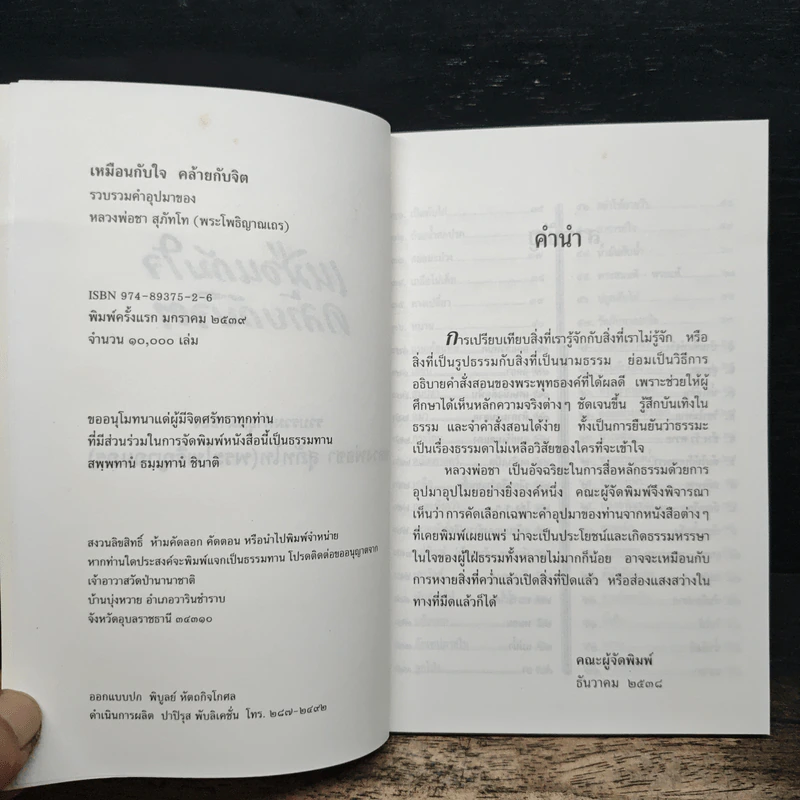 เหมือนกับใจ คล้ายกับจิต
รวบรวมคำอุปมาของ
หลวงพ่อชา สุภัทโท (พระโพธิญาณเถร)
ISBN 974-89375-2-6
พิมพ์ครั้งแรก มกราคม ๒๕๓๙
จำนวน ๑๐,๐๐๐ เล่ม
ขออนุโมทนาแด่ผู้มีจิตศรัทธาทุกท่าน
ที่มีส่วนร่วมในการจัดพิมพ์หนังสือนี้เป็นธรรมทาน
สพฺพทานํ ธมฺมทานํ ชินาติ
สงวนลิขสิทธิ์ ห้ามคัดลอก คัดตอน หรือนำไปพิมพ์จำหน่าย
หากท่านใดประสงค์จะพิมพ์แจกเป็นธรรมทาน โปรดติดต่อขออนุญาตจาก
เจ้าอาวาสวัดป่านานาชาติ
บ้านบุ่งหวาย อำเภอวารินชำราบ
จังหวัดอุบลราชธานี ๓๔๓๑๐
ออกแบบปก พิบูลย์ หัตถกิจโกศล
ดำเนินการผลิต ปาปิรุส พับลิเคชั่น โทร. ๒๘๗-๒๔๙๒
คำนำ
การเปรียบเทียบสิ่งที่เรารู้จักกับสิ่งที่เราไม่รู้จัก หรือ
สิ่งที่เป็นรูปธรรมกับสิ่งที่เป็นนามธรรม ย่อมเป็นวิธีการ
อธิบายคำสั่งสอนของพระพุทธองค์ที่ได้ผลดี เพราะช่วยให้ผู้
ศึกษาได้เห็นหลักความจริงต่างๆ ชัดเจนขึ้น รู้สึกบันเทิงใน
ธรรม และจำคำสั่งสอนได้ง่าย ทั้งเป็นการยืนยันว่าธรรมะ
เป็นเรื่องธรรมดาไม่เหลือวิสัยของใครที่จะเข้าใจ
หลวงพ่อชา เป็นอัจฉริยะในการสื่อหลักธรรมด้วยการ
อุปมาอุปไมยอย่างยิ่งองค์หนึ่ง คณะผู้จัดพิมพ์จึงพิจารณา
เห็นว่า การคัดเลือกเฉพาะคำอุปมาของท่านจากหนังสือต่างๆ
ที่เคยพิมพ์เผยแพร่ น่าจะเป็นประโยชน์และเกิดธรรมหรรษา
ในใจของผู้ใฝ่ธรรมทั้งหลายไม่มากก็น้อย อาจจะเหมือนกับ
การหงายสิ่งที่คว่ำแล้วเปิดสิ่งที่ปิดแล้ว หรือส่องแสงสว่างใน
ทางที่มืดแล้วก็ได้
คณะผู้จัดพิมพ์
ธันวาคม ๒๕๓๘